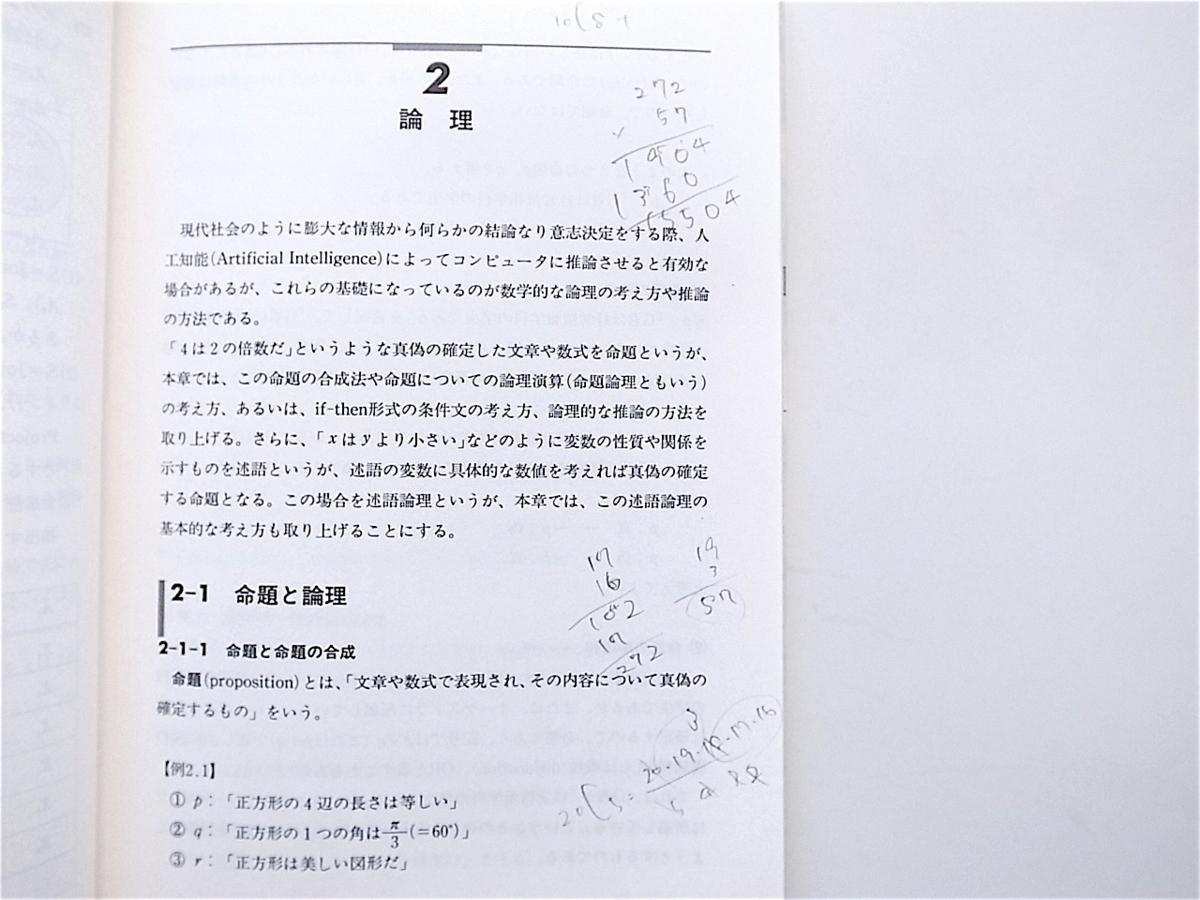 2
論 理
272
57
1904
1360
15504
現代社会のように膨大な情報から何らかの結論なり意志決定をする際、人
工知能(Artificial Intelligence)によってコンピュータに推論させると有効な
場合があるが、これらの基礎になっているのが数学的な論理の考え方や推論
の方法である。
「4は2の倍数だ」というような真偽の確定した文章や数式を命題というが、
本章では、この命題の合成法や命題についての論理演算(命題論理ともいう)
の考え方、あるいは、if-then形式の条件文の考え方、論理的な推論の方法を
取り上げる。さらに、「xはyより小さい」などのように変数の性質や関係を
示すものを述語というが、述語の変数に具体的な数値を考えれば真偽の確定
する命題となる。この場合を述語論理というが、本章では、この述語論理の
基本的な考え方も取り上げることにする。
17
16
102
17
272
19
3
57
2-1 命題と論理
2-1-1 命題と命題の合成
命題(proposition)とは、「文章や数式で表現され、その内容について真偽の
確定するもの」をいう。
3
20·19·18·17·16
【例2.1】
① p:「正方形の4辺の長さは等しい」
② q:「正方形の1つの角はπ/3(=60°)」
③ r:「正方形は美しい図形だ」